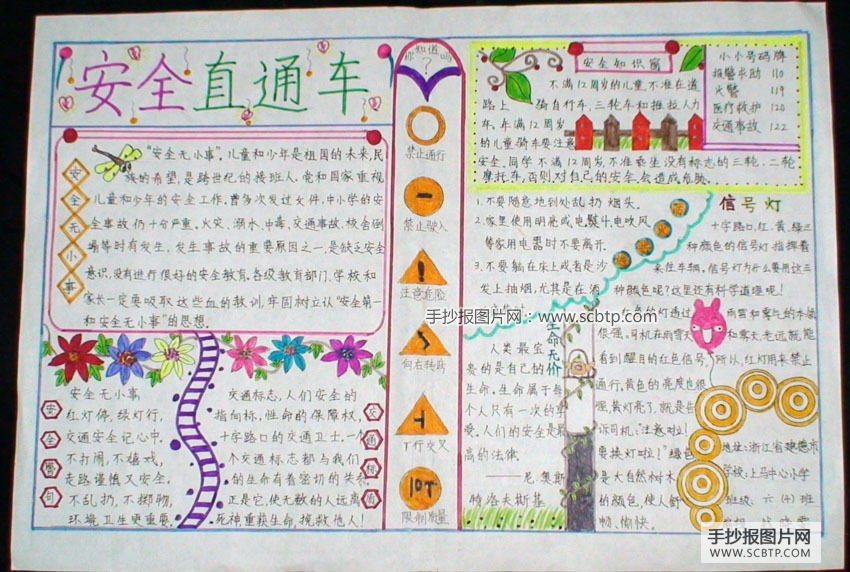 安全直通车
"安全无小事"。儿童和少年是祖国的未来,民
族的希望,是跨世纪的接班人,党和国家重视
儿童和少年的安全工作,曾多次发过文件,中小学的安
全事故仍十分严重。火灾、溺水、中毒、交通事故、校舍倒
塌等时有发生,发生事故的重要原因之一,是缺乏安全
意识,没有进行很好的安全教育,各级教育部门、学校和
家长一定要吸取这些血的教训,牢固树立认"安全第一
和安全无小事"的思想。
安
全
无
小
事
安全无小事
红灯停,绿灯行,
交通安全记心中,
不打闹,不嬉戏,
走路谨慎又安全,
不乱扔,不掷物,
环境卫生更重要.
安
全
警
句
交通标志,人们安全的
指向标,性命的保障权,
十字路口的交通卫士,一个
个交通标志都与我们
的生命有着密切的关系
正是它,使无数的人远离
死神重获生命,挽救他人!
交
通
标
你知道吗
?
禁止通行
禁止驶入
注意危险
向右转弯
丁行交叉
10T
限制质量
安全知识窗
不满12周岁的儿童,不准在道
路上骑自行车,三轮车和推拉人力
车。车满12周岁
的儿童骑车要注意
安全,同学不满12周岁,不准乘坐没有标志的三轮、二轮
摩托车,否则对自己的安全会造成危胁
小小号码牌
报警求助 110
火警 119
医疗救护 120
交通事故 122
1.不要随意地到处乱扔烟头。
2.家里使用明亮或电熨斗、电吹风
等家用电器时不要离开。
3.不要躺在床上或者是沙
发上抽烟,尤其是在酒
生命无价
人类最宝
贵的是自己的
生命,生命属于每
个人只有一次的
爱。人们的安全是最
高的法律。
——尼·奥斯
特洛夫斯基
信号灯
十字路口,红、黄、绿三
种颜色的信号灯指挥着
来往车辆,信号灯为什么要用这三
种颜色呢?这里还有科学道理呢!
色的灯透过雨雾和雾气的本领
很强。司机在雨雪天和雾天,老远就能
看到醒目的红色信号所以,红灯用来禁止
通行,黄色的亮度也很
强,黄灯亮了,就是告
诉司机:"注意啦!
要换灯啦!"绿色
是大自然树木
的颜色,使人舒
畅、愉快。
地址:浙江省建德市
学校:上马中心小学
班级:六(4)班
手抄报图片网:www.scbtp.com
手抄报图片网
WWW.SCBTP.COM